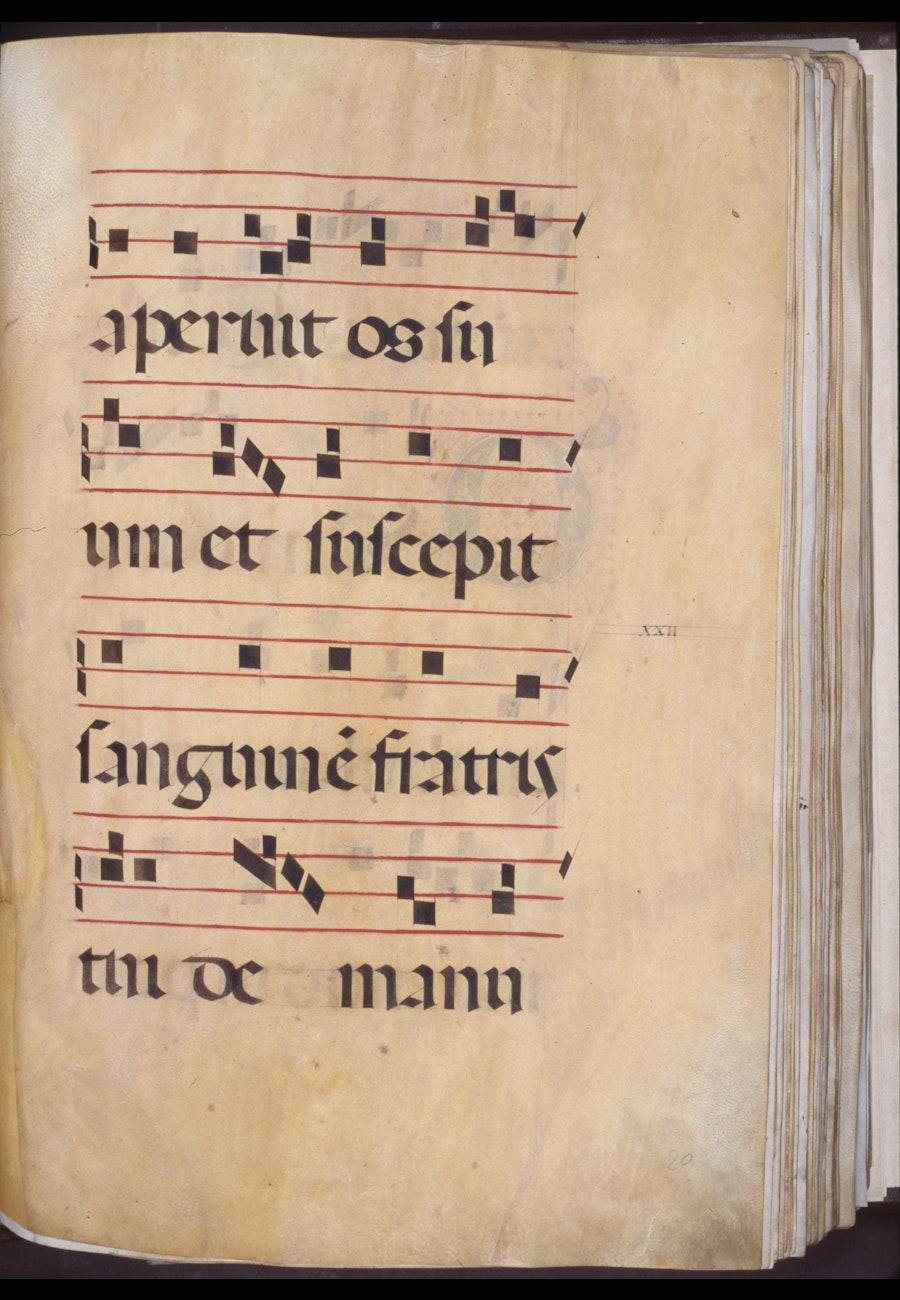 aperuit os su
um et suscepit
XXII
sanguinē fratris
tui de manu
20